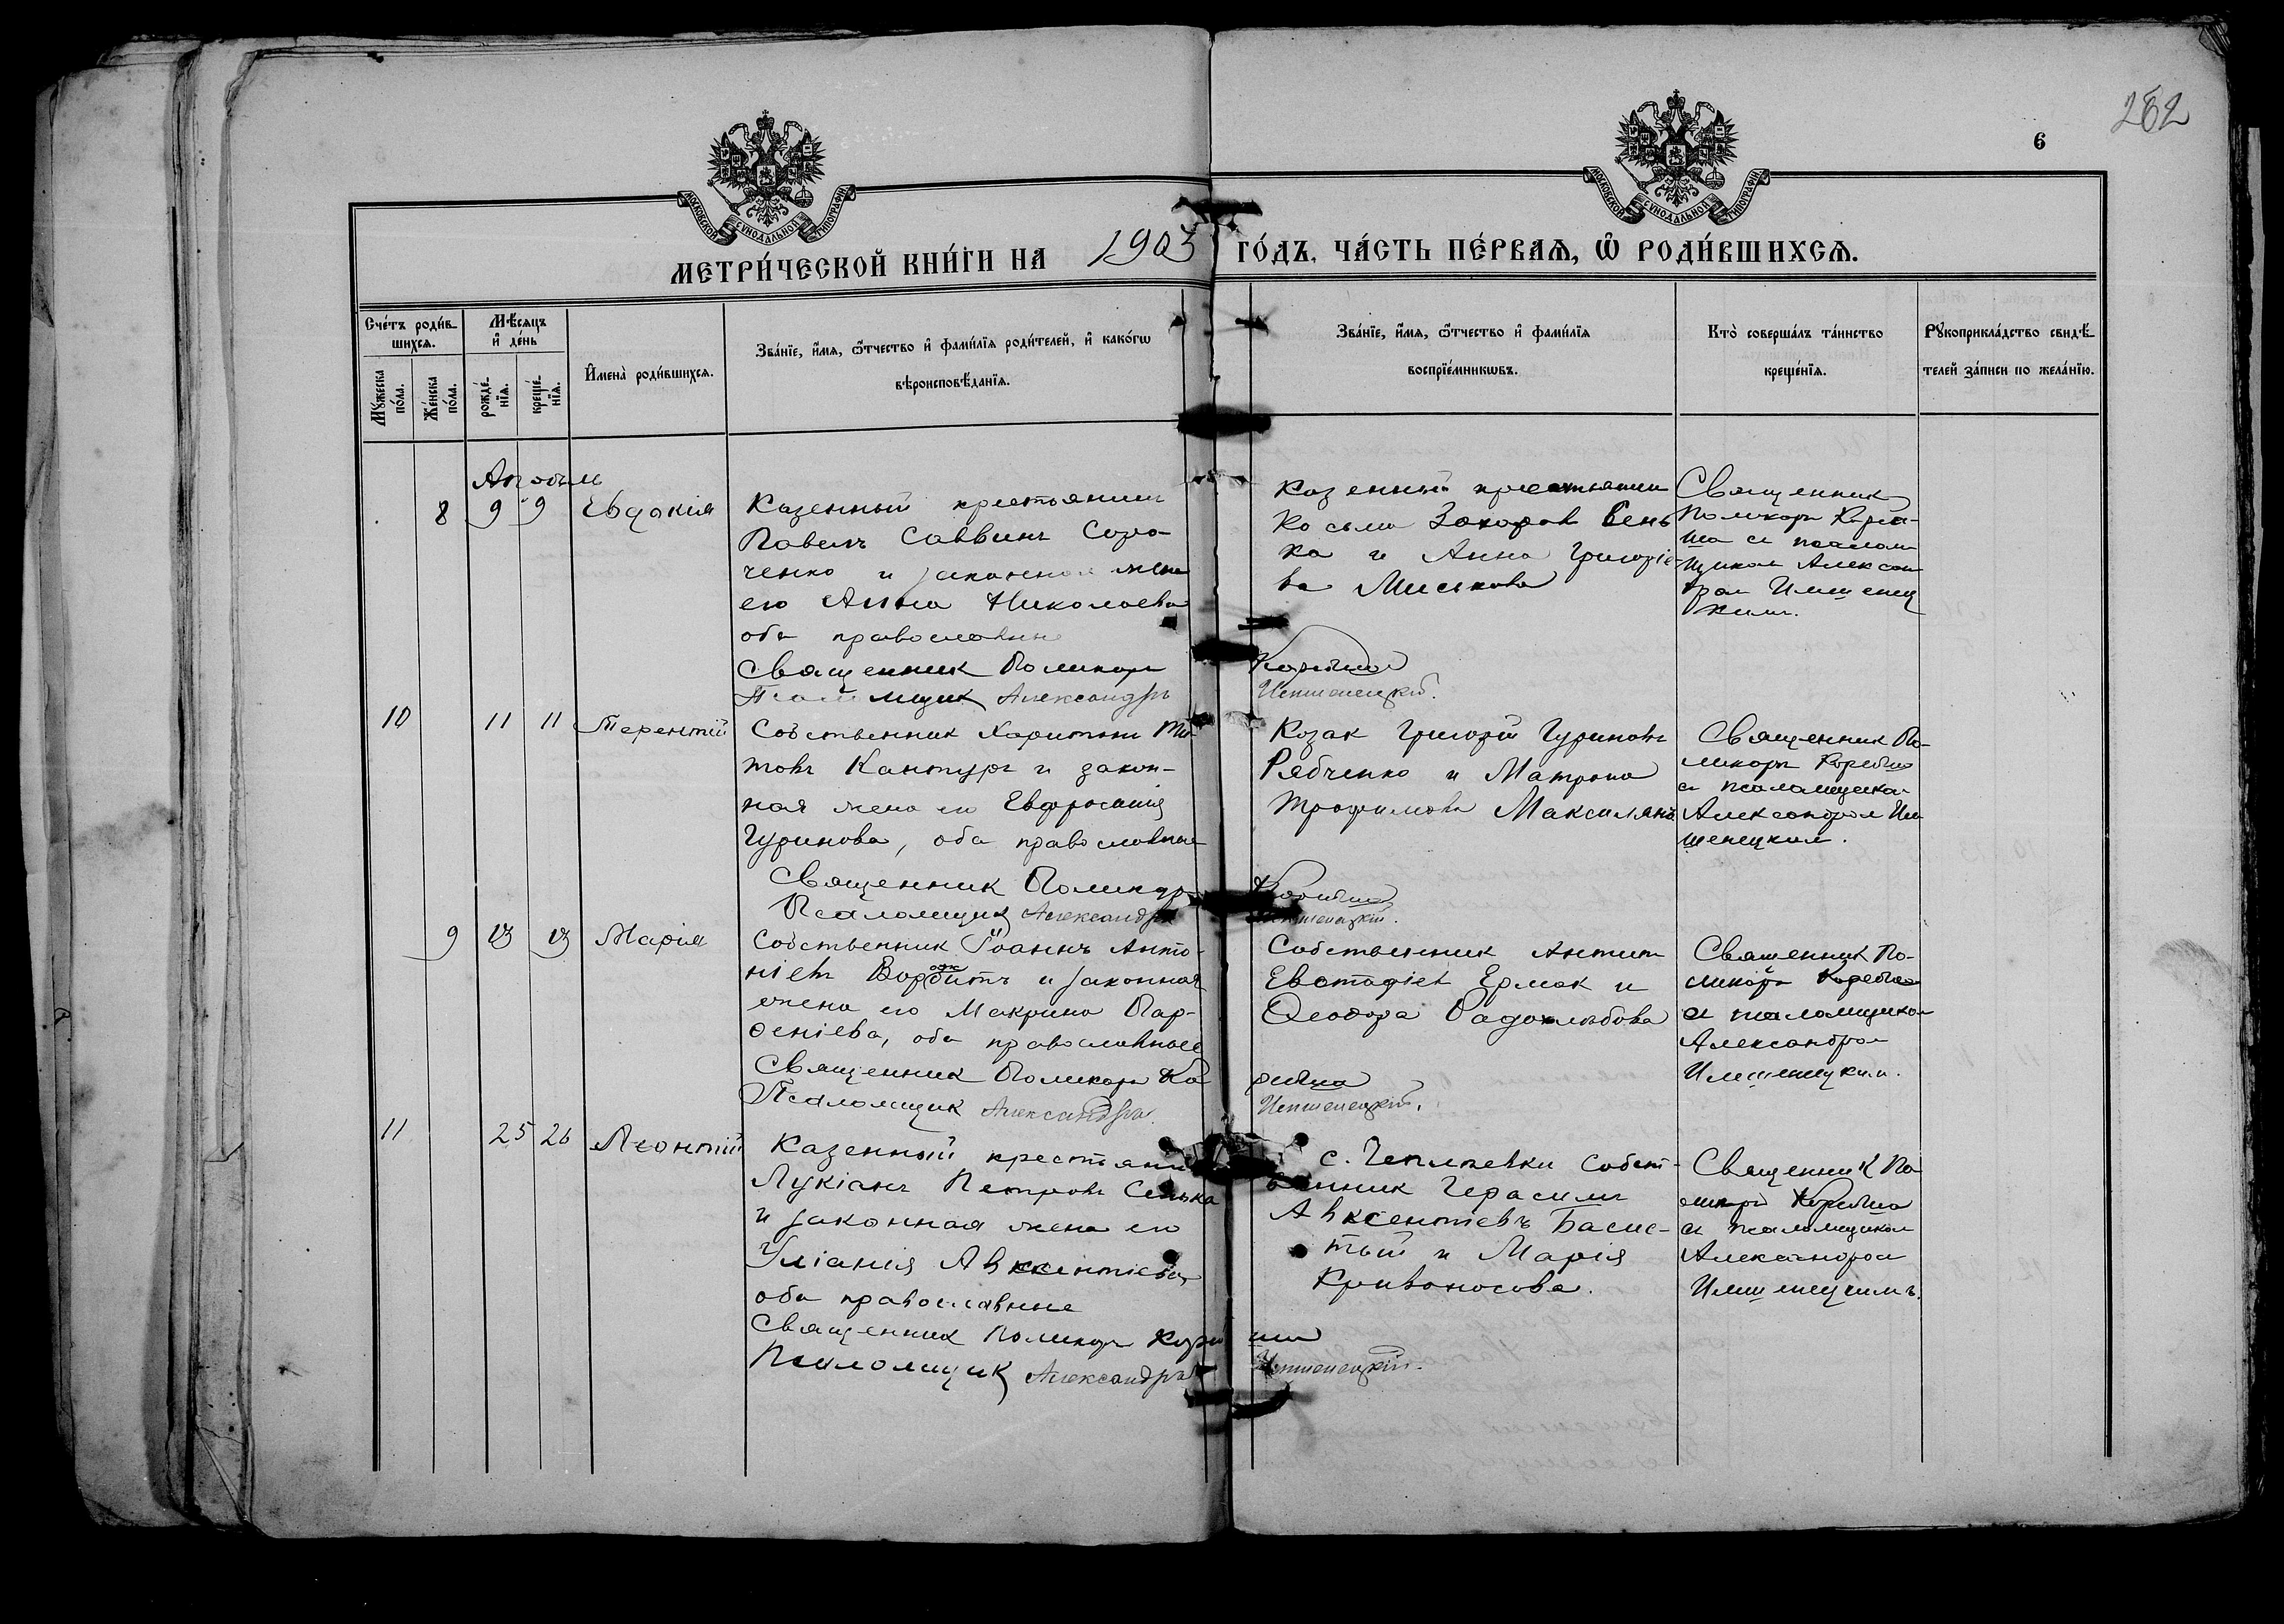 262
6
МОСКОВСКОЙ СѴНОДАЛЬНОЙ ТИПОГРАФІИ
МОСКОВСКОЙ СѴНОДАЛЬНОЙ ТИПОГРАФІИ
МЕТРИ́ЧЕСКОЙ КНИ́ГИ НА 1903 ГО́ДЪ, ЧА́СТЬ ПЕ́РВАѦ, Ѽ РОДИ́ВШИХСѦ.
Сче́тъ роди́в-
шихсѧ.
Мꙋжеска по́ла.
Же́нска по́ла.
Мѣ́сѧцъ и҆ де́нь
рожде́-
нїѧ.
креще́-
нїѧ.
И҆мена̀ роди́вшихсѧ.
Зва́нїе, и҆́мѧ, ѻ҆́тчество и҆ фами́лїѧ роди́телей, и҆ како́гѡ
вѣроисповѣ́данїѧ.
Зва́нїе, и҆́мѧ, ѻ҆́тчество и҆ фами́лїѧ
воспрїе́мникѡвъ.
Кто̀ соверша́лъ та́инство
креще́нїѧ.
Рꙋкоприкла́дство свидѣ́-
телей за́писи по жела́нїю.
8
9 9
Евдокія
Казенный крестьянинъ
Павелъ Саввинъ Соро-
ченко и законная жена
его Анна Николаева
оба православные
Священник Поликарп
Псаломщик Александръ
Казенный крестьянин
Косьма Захаров Сень
ка и Анна Григоріе-
ва Миськова
Иншенецкій.
Священник
Поликарп
с псалом
щиком Алексан
дром
10
11 11
Терентій
Собственник Харитон Ти-
товъ Кантуръ и закон-
ная жена его Евфросинія
Гуринова, оба православные
Священник Поликарп
Псаломщик Александръ
Козак Григорій Гуриновъ
Рябченко и Матрона
Трофимова
Священник По-
ликарп
с псаломщиком
Александром
9
13 13
Марія
Собственник Іоаннъ Анто-
ніевъ и законная
жена его Макрина Пар-
ѳеніева, оба православные
Священник Поликарп Ко
Псаломщик Александръ.
Собственник Антип
Евстафіев Ермак и
Ѳеодора
Священник По-
ликарп
с псаломщиком
Александром
11
25 26
Леонтій
Казенный крестьянин
Лукіанъ Петровъ Сенька
и законная жена его
Уліанія Авксентіева,
оба православные
Священник Поликарп
Псаломщик Александръ
с. собст-
венник Герасимъ
Авксентіевъ Басис-
тый и Марія
Кривоносова.
Священник По
ликарп
с псаломщиком
Александром